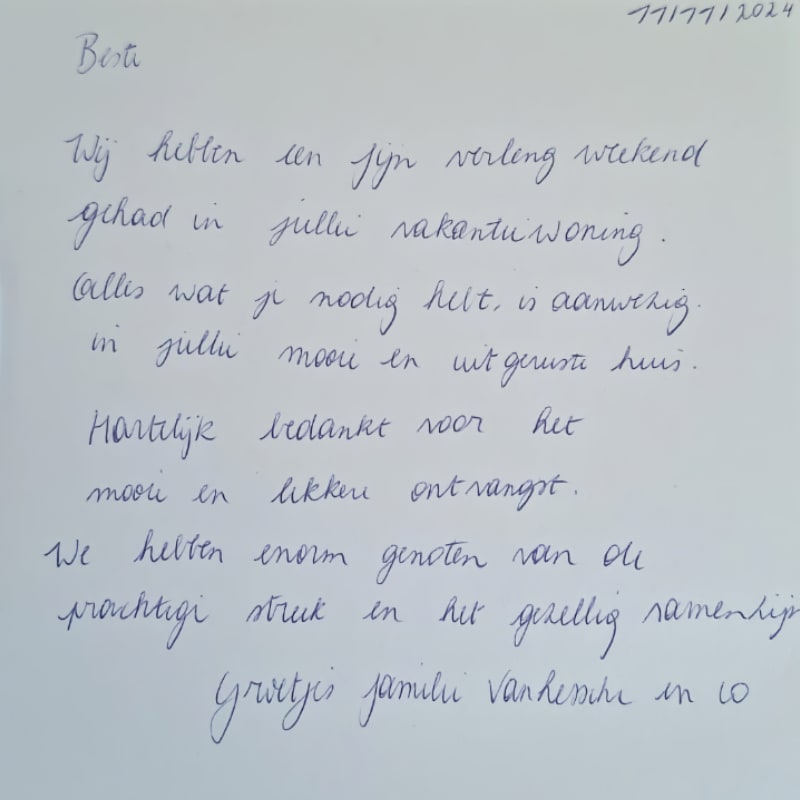 11/11/2024
Beste
Wij hebben een fijn verleng weekend
gehad in jullie vakantiewoning.
Alles wat je nodig hebt, is aanwezig.
in jullie mooie en uitgeruste huis.
Hartelijk bedankt voor het
mooie en lekkere ontvangst.
We hebben enorm genoten van de
prachtige streek en het gezellig samenzijn
Groetjes familie en co